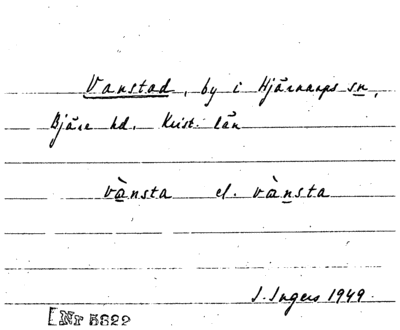 Vanstad, by i Hjärnarps sn,
Bjäre hd. Krist. län
vànsta el. vànsta
I. Ingers 1949.
[Nr 5822